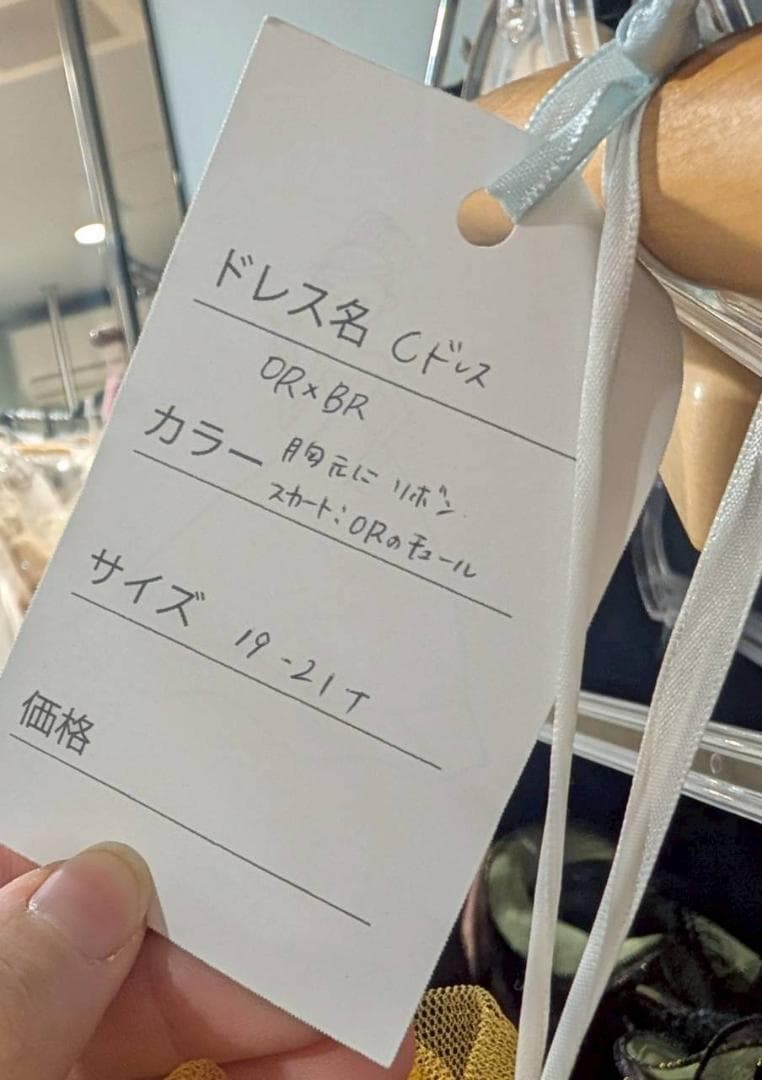 ドレス名 Cドレス
OR×BR
カラー 胸元に リボン
スカート:ORのチュール
サイズ 19-21T
価格